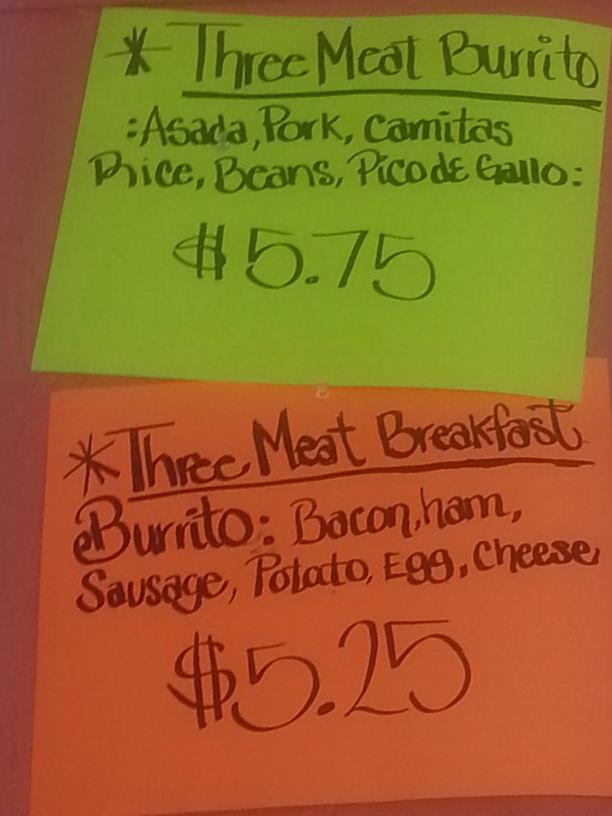 * Three Meat Burrito
: Asada, Pork, Carnitas
Rice, Beans, Pico de Gallo :
$5.75
* Three Meat Breakfast
Burrito: Bacon, ham,
Sausage, Potato, Egg, Cheese
$5.25